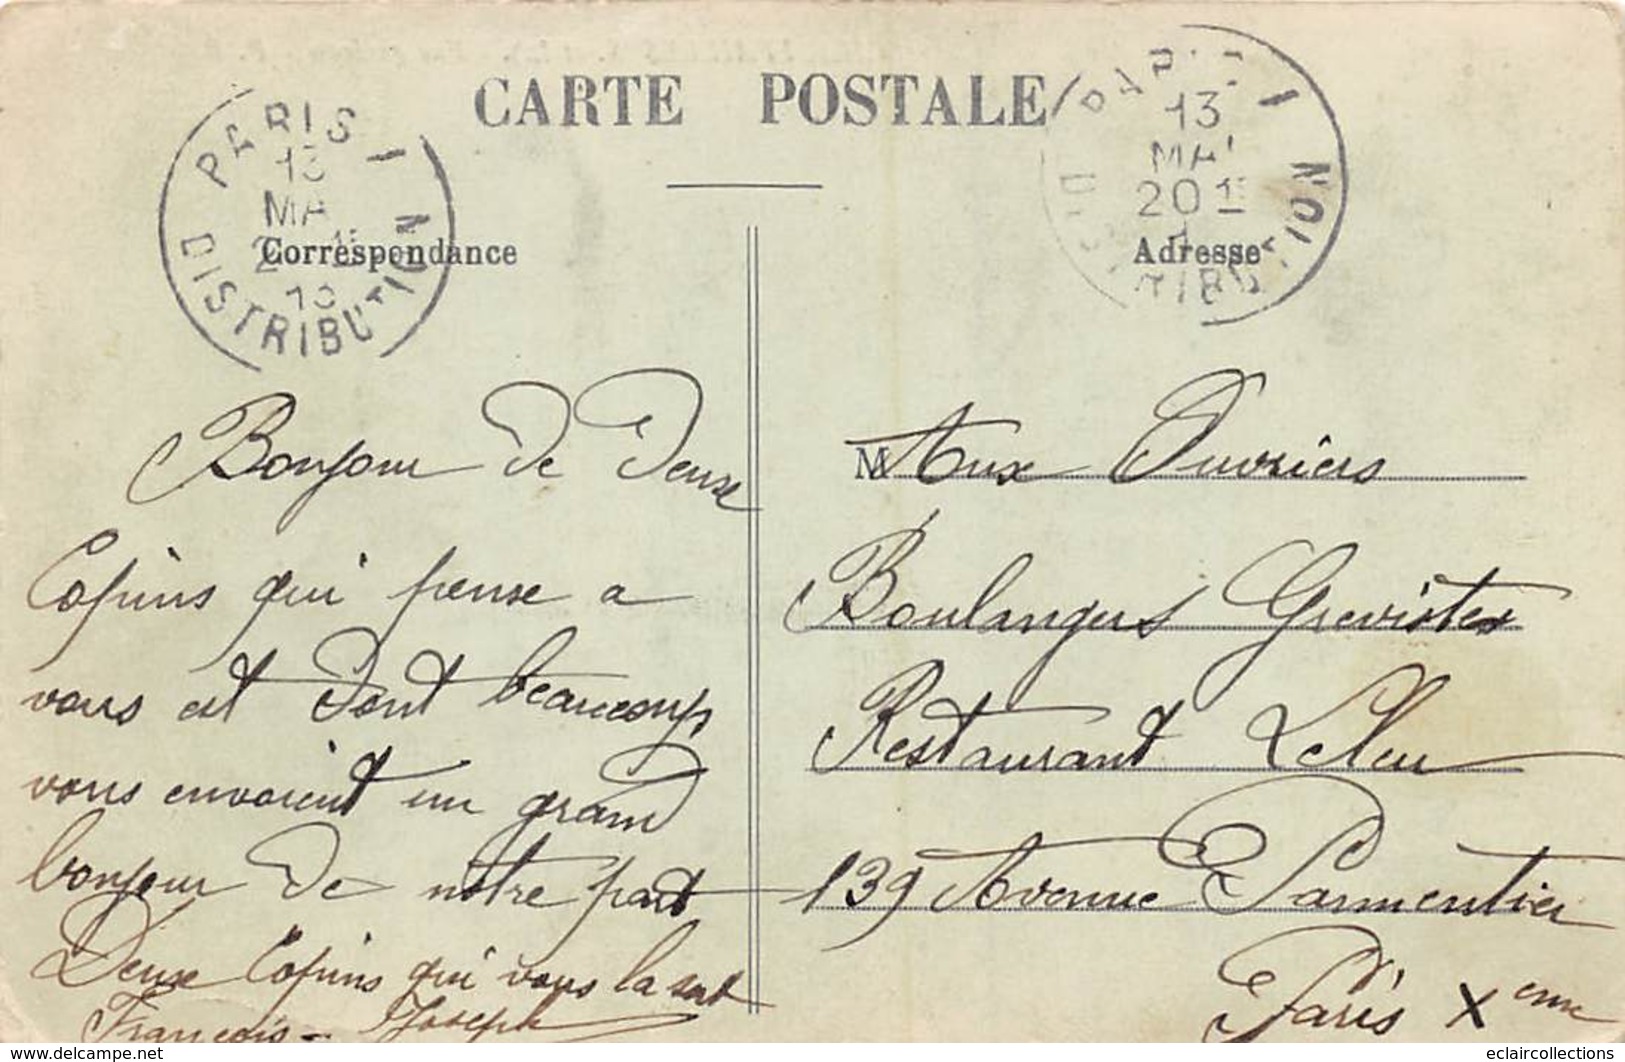 CARTE POSTALE
PARIS I
13
MA
2
13
DISTRIBUTION
PARIS I
13
MAI
20 15
1
DISTRIBUTION
Correspondance
Adresse
Bonjour de Deuxe
Copins qui pense a
vous est dont beaucoup
vous envoient un grand
bonjour de notre part
Deuxe Copins qui vous la
François - Joseph
M Aux Ouvriers
Boulangers Grevistes
Restaurant
139 Avenue Parmentier
Paris Xeme
delcampe.net
eclaircollections